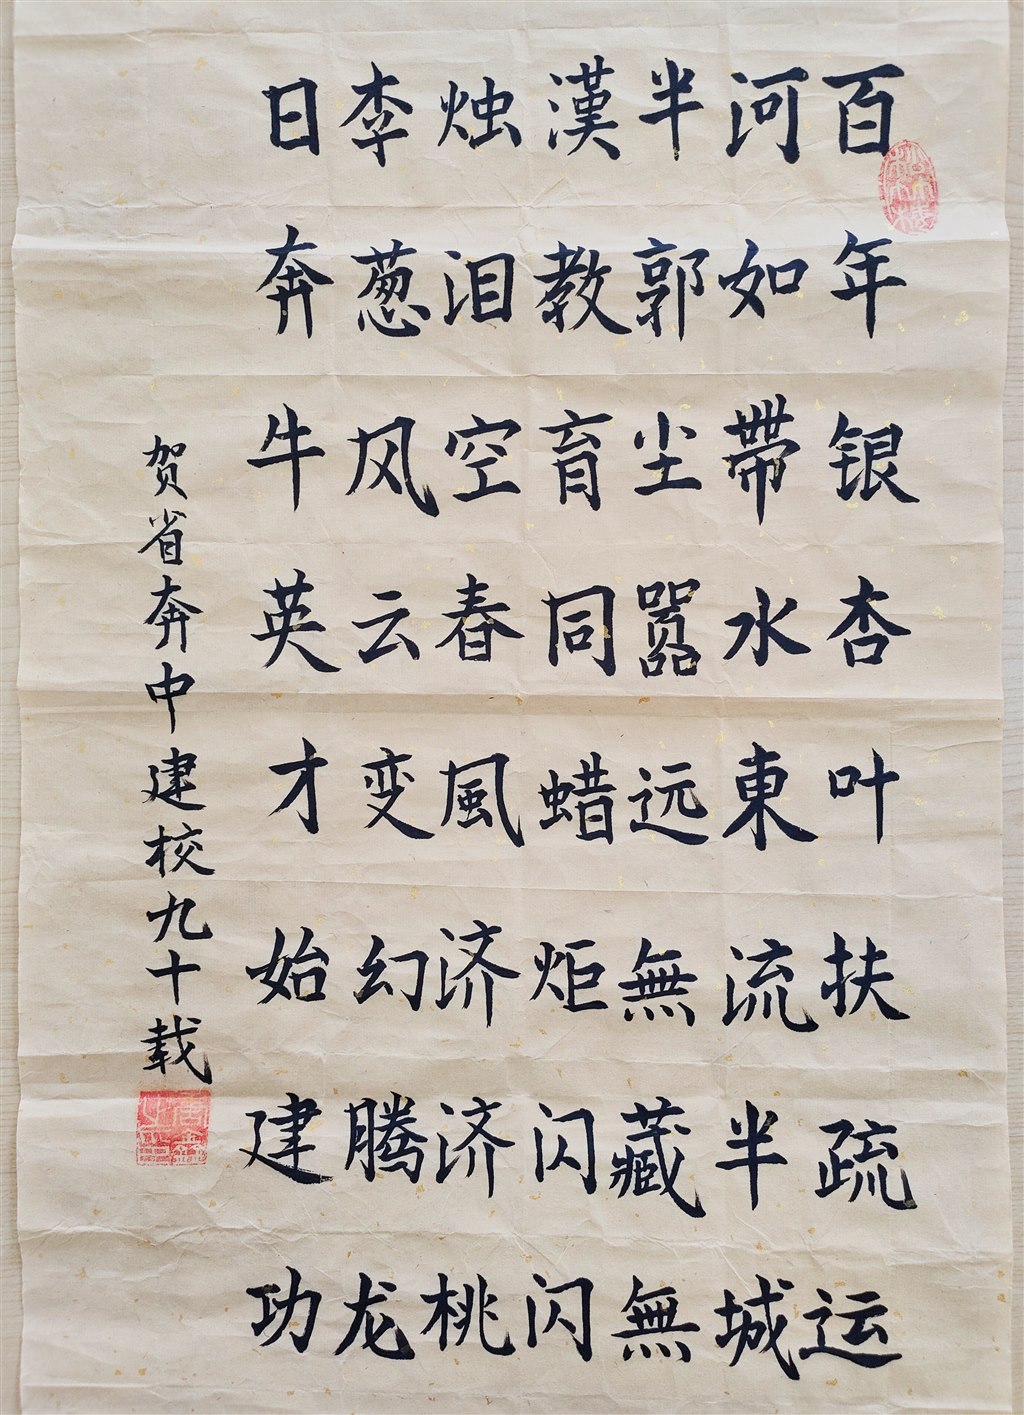 百年银杏叶扶疏运
河如帶水東流半城
半郭尘嚣远無藏無
漢教育同蜡炬闪闪
烛泪空春風济济桃
李葱风云变幻腾龙
日奔牛英才始建功
贺省奔中建校九十载